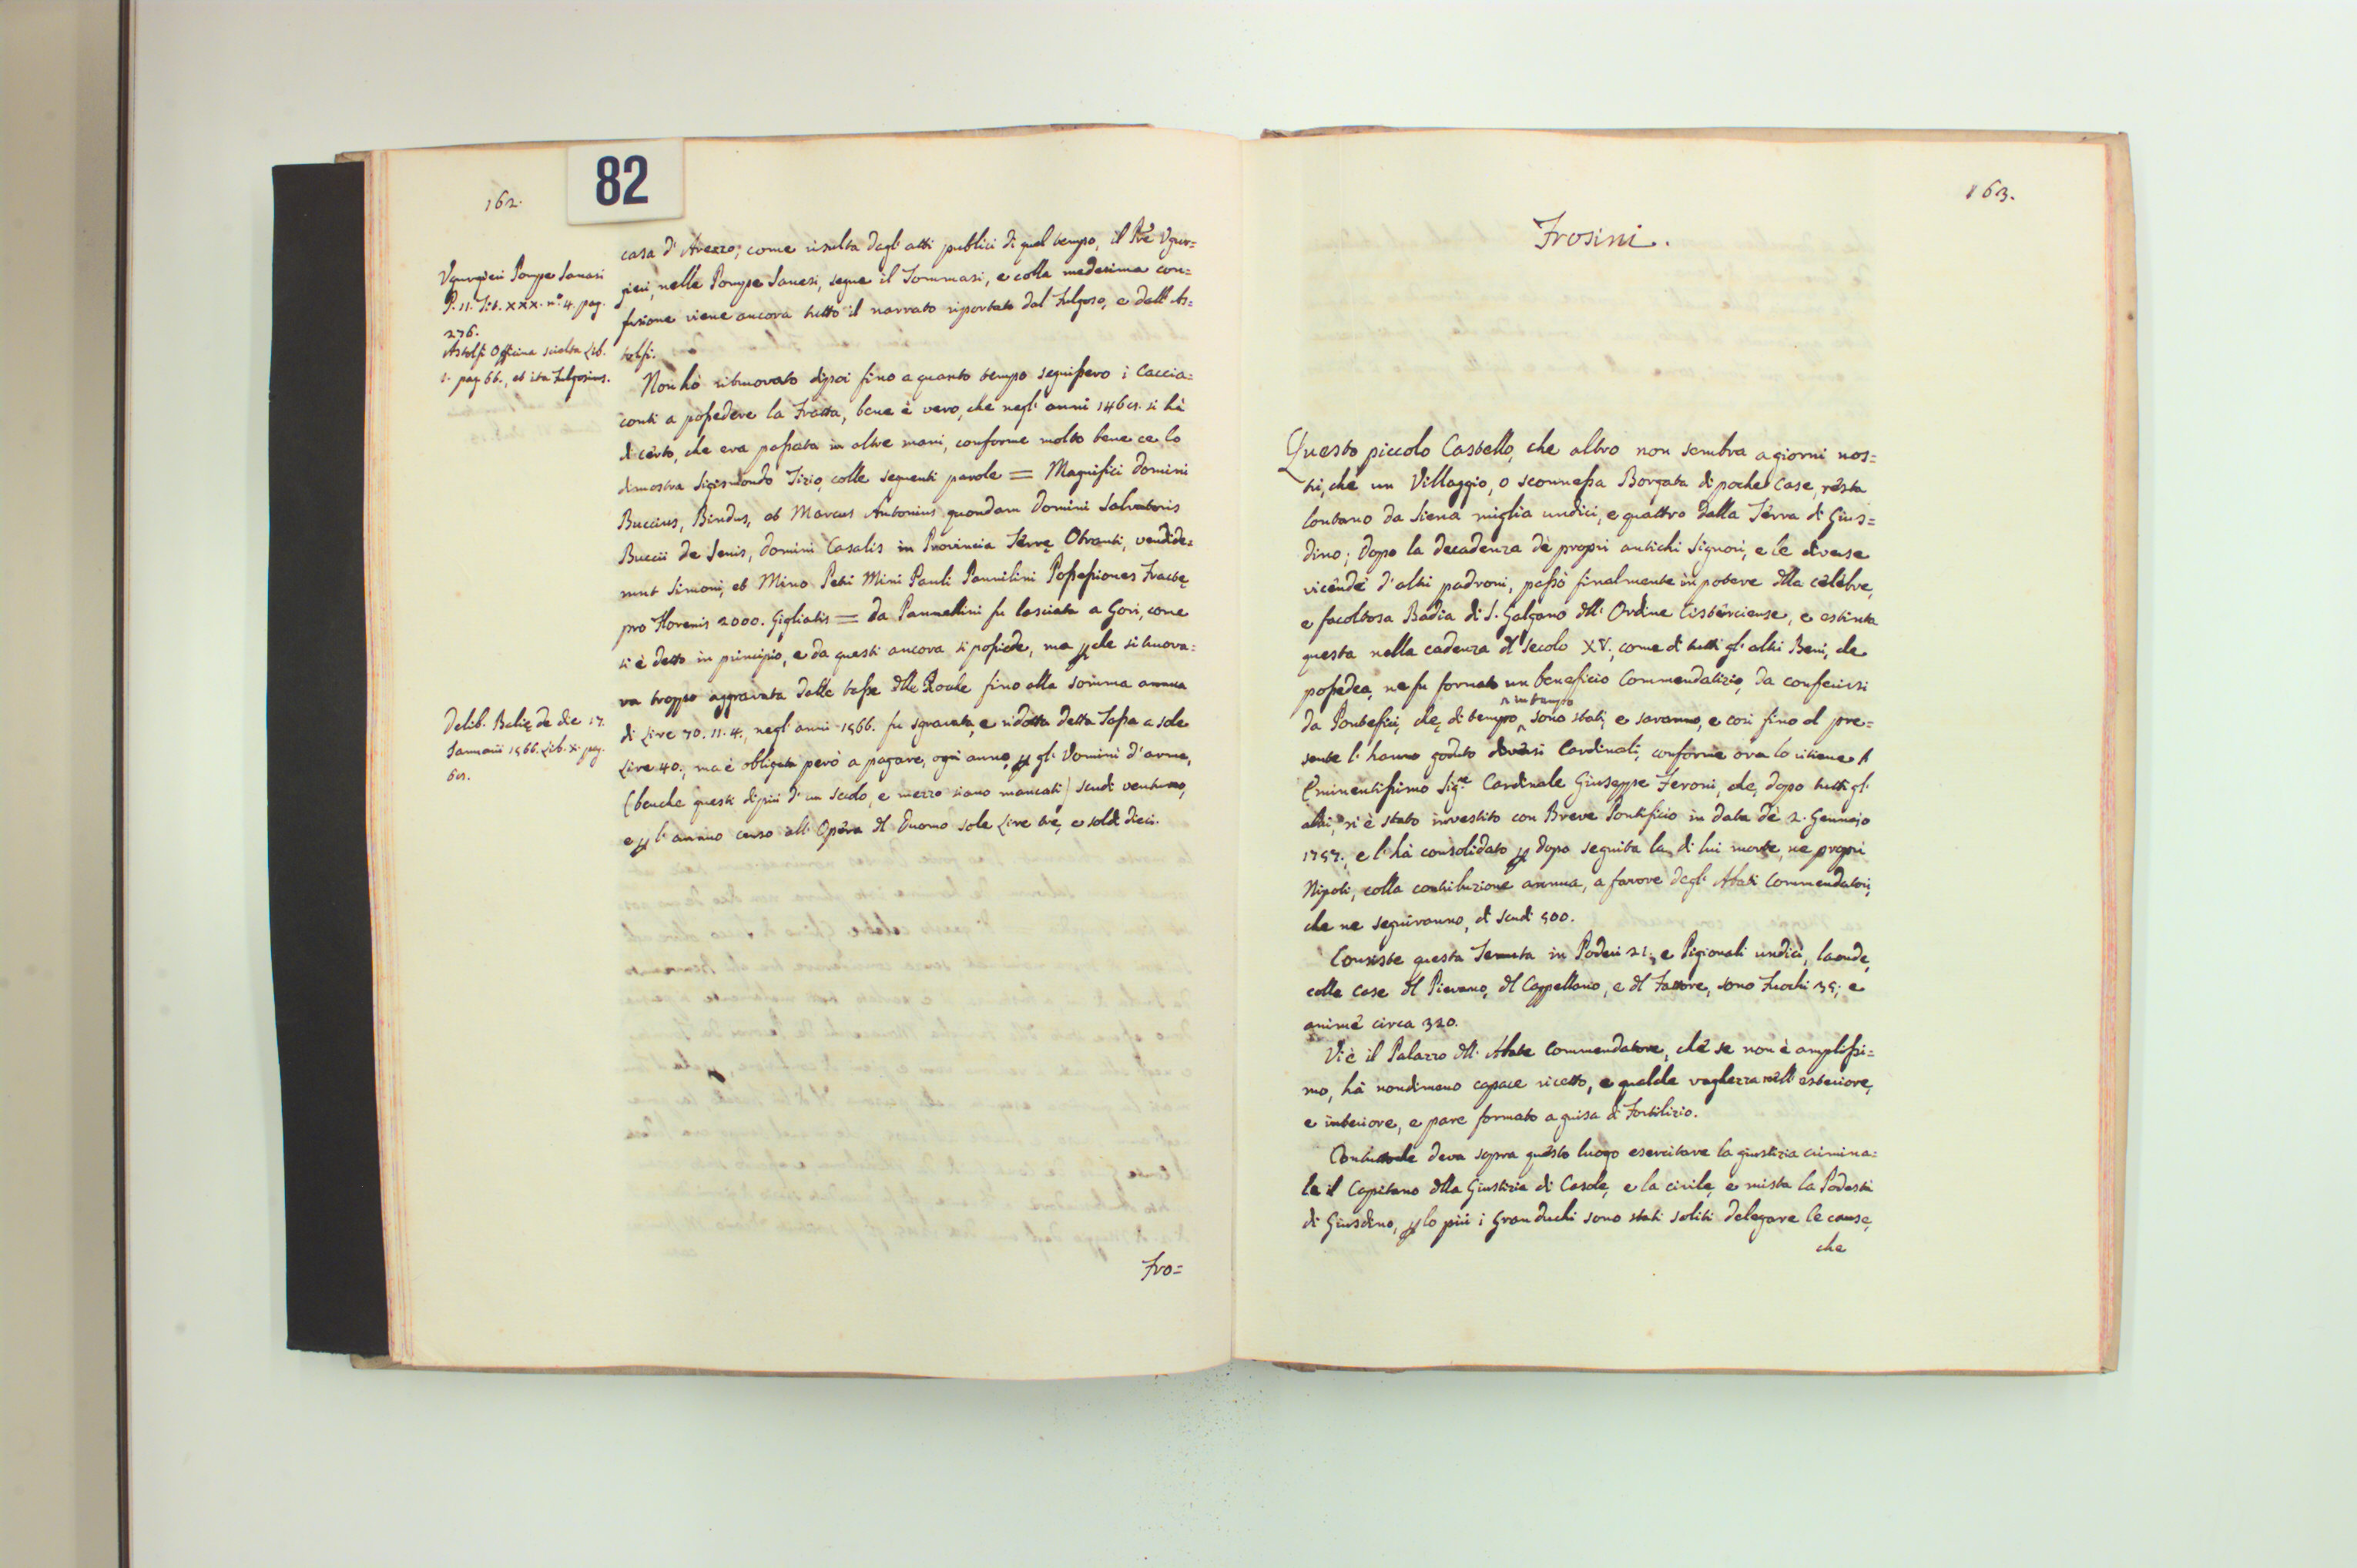 82
162.
casa d' Arezzo; come risulta dagl' atti publici di quel tempo, il Pre Vgur=
gieri, nelle Pompe Sanesi, segue il Tommasi, e colla medesima con=
fusione viene ancora tutto il narrato riportato dal Fulgoso, e dall' As=
tolfi.
Vgurgieri Pompe Sanasi
P. 11. Tit. XXX. n.º 4. pag.
276.
Astolfi Officina scielta Lib.
1. pag. 66., et ita Fulgosius.
Non hò ritruovato dipoi fino a quanto tempo seguissero i Caccia=
conti a possedere la Fratta, bene è vero, che negl' anni 146 si hà
di certo, che era passata in altre mani, conforme molto bene ce lo
dimostra Sigismondo Tizio, colle seguenti parole = Magnifici Domini
Buccius, Bindus, et Marcus Antonius quondam Domini Salvatoris
Buccii de Senis, Domini Casalis in Provincia Terrę Otranti, vendide=
runt Simoni, et Mino Petri Mini Pauli Pannilini Possessiones Fractę
pro Florenis 2000. Gigliatis = da Pannellini fu lasciata a Gori, come
si è detto in principio, e da questi ancora si possiede, ma p che si truova=
va troppo aggravata dalle tasse dlle Rocche fino alla somma annua
di Lire 70. 11. 4., negl' anni 1566. fu sgravata, e ridotta detta Tassa a sole
Lire 40., ma è obligata però a pagare, ogni anno, p gl' Vomini d' arme,
(benche questi dipiù d' un secolo, e mezzo siano mancati) scudi ventuno,
e p l' annuo censo all' Opera dl Duomo sole Lire trè, e soldi dieci.
Delib. Balię de die 17.
Januarii 1566. Lib. X. pag.
Fro=
163.
Frosini.
Questo piccolo Castello, che altro non sembra a giorni nos=
tri, che un Villaggio, o sconnessa Borgata di poche Case, resta
lontano da Siena miglia undici, e quattro dalla Terra di Gius=
dino; dopo la decadenza dè propri antichi Signori, e le diverse
vicende d' altri padroni, passò finalmente in potere dlla celebre,
e facoltosa Badia di S. Galgano dll' Ordine Cisterciense, e estinta
questa nella cadenza dl secolo XV., come di tutti gl' altri Beni, che
possedea, ne fu formato un beneficio Commendatizio, da conferirsi
da Pontefici, che, di tempo in tempo sono stati, e saranno, e cosi fino al pre=
sente l' hanno goduto diversi Cardinali, conforme ora lo ritiene l'
Eminentissimo Sig.re Cardinale Giuseppe Feroni, che, dopo tutti gl'
altri, n' è stato investito con Breve Pontificio in data dè 2. Gennajo
1757., e l' hà consolidato p dopo seguita la di lui morte, ne propri
Nipoti, colla contribuzione annua, a favore degl' Abati Commendatori,
che ne seguiranno, di scudi 500.
Consiste questa Tenuta in Poderi 21., e Pigionali undici, laonde,
colle Case dl Pievano, dl Cappellano, e dl Fattore, sono Fuochi 35; e
anime circa 320.
Vi è il Palazzo dll' Abate Commendatore, che se non è amplissi=
mo, hà nondimeno capace ricetto, e qualche vaghezza nell' esteriore,
e interiore, e pare formato a guisa di Fortilizio.
Contuttoche deva sopra questo luogo esercitare la giustizia crimina=
le il Capitano dlla Giustizia di Casole, e la civile, e mista la Podestà
di Giusdino, p lo più i Granduchi sono stati soliti delegare le cause,
che